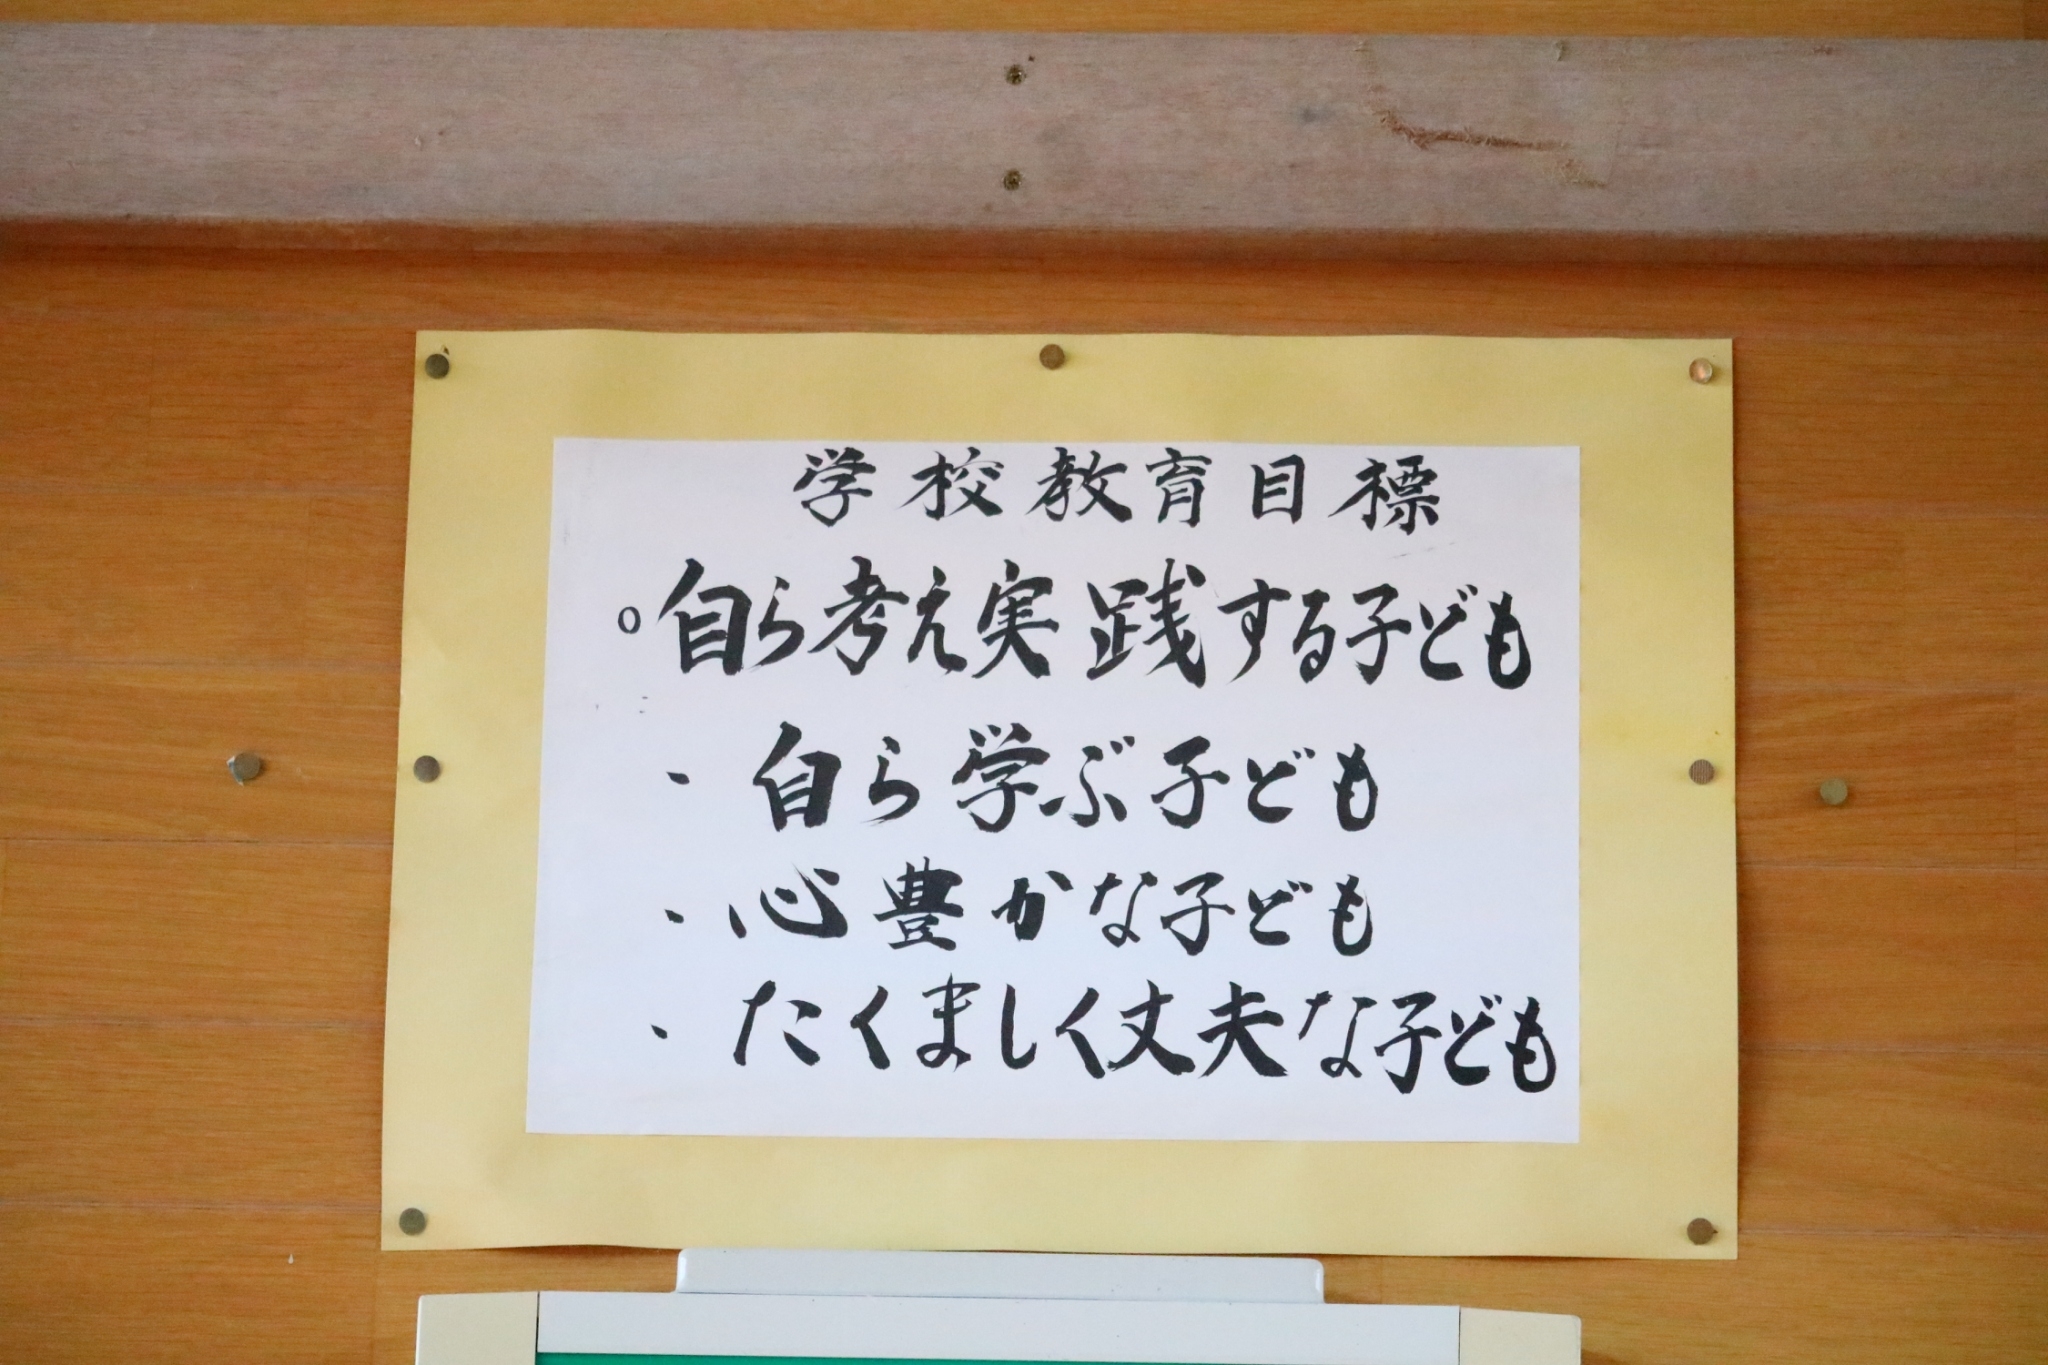 学校教育目標
○自ら考え実践する子ども
・自ら学ぶ子ども
・心豊かな子ども
・たくましく丈夫な子ども